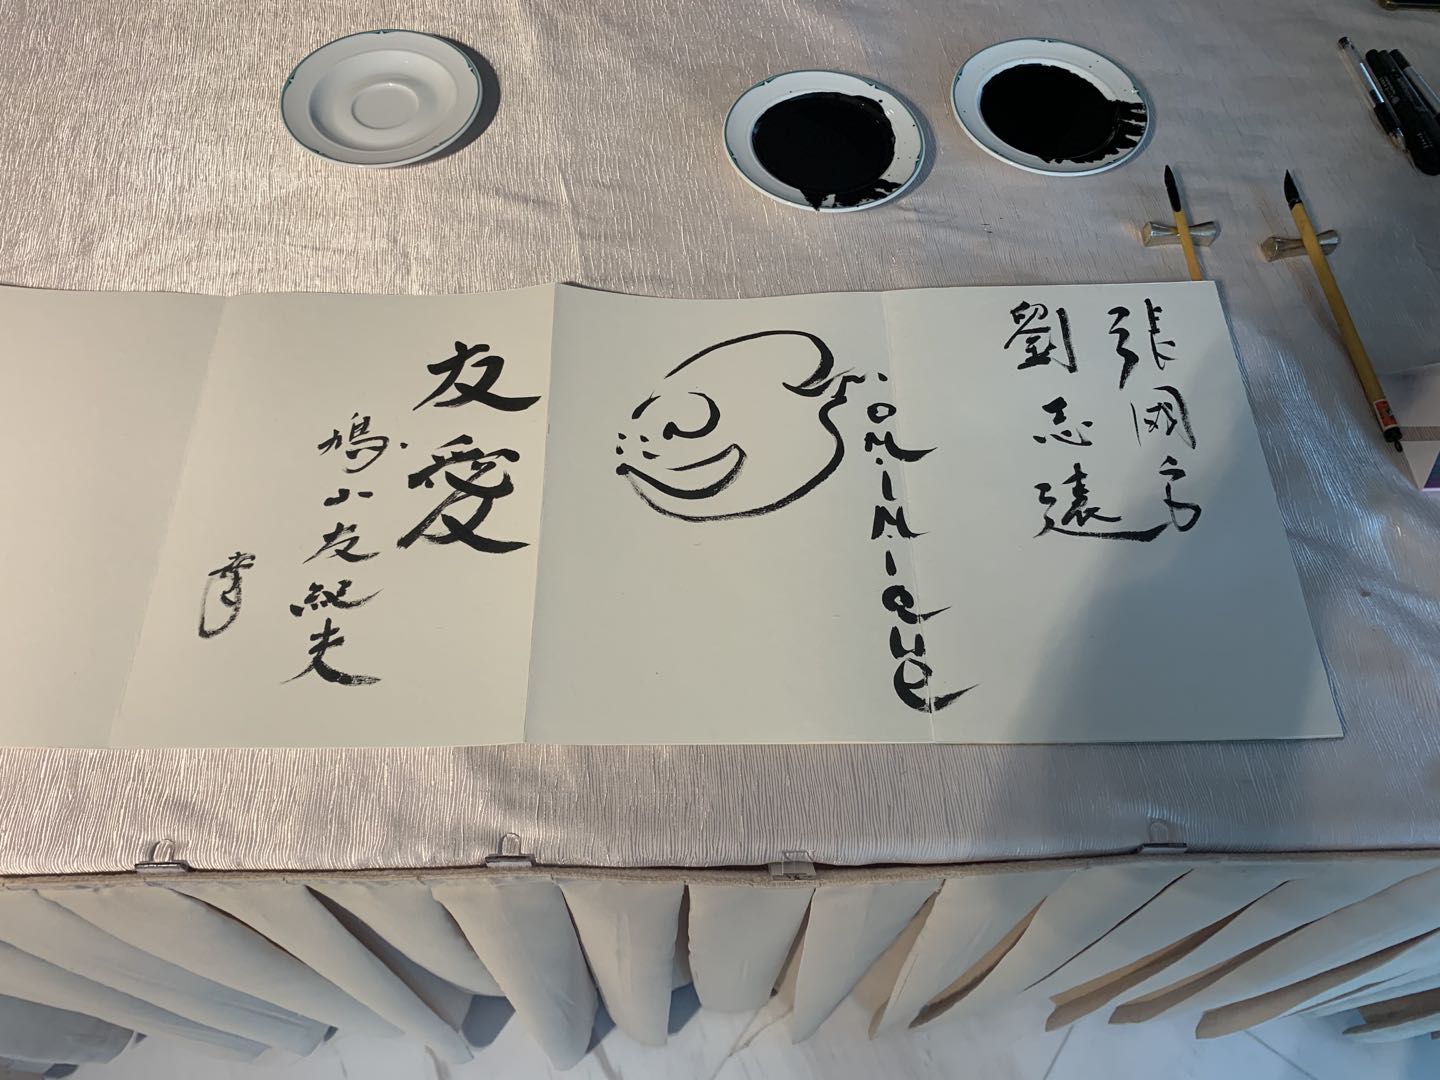 張國方
劉志遠
DOMINIQUE
友愛
鳩山友紀夫
幸